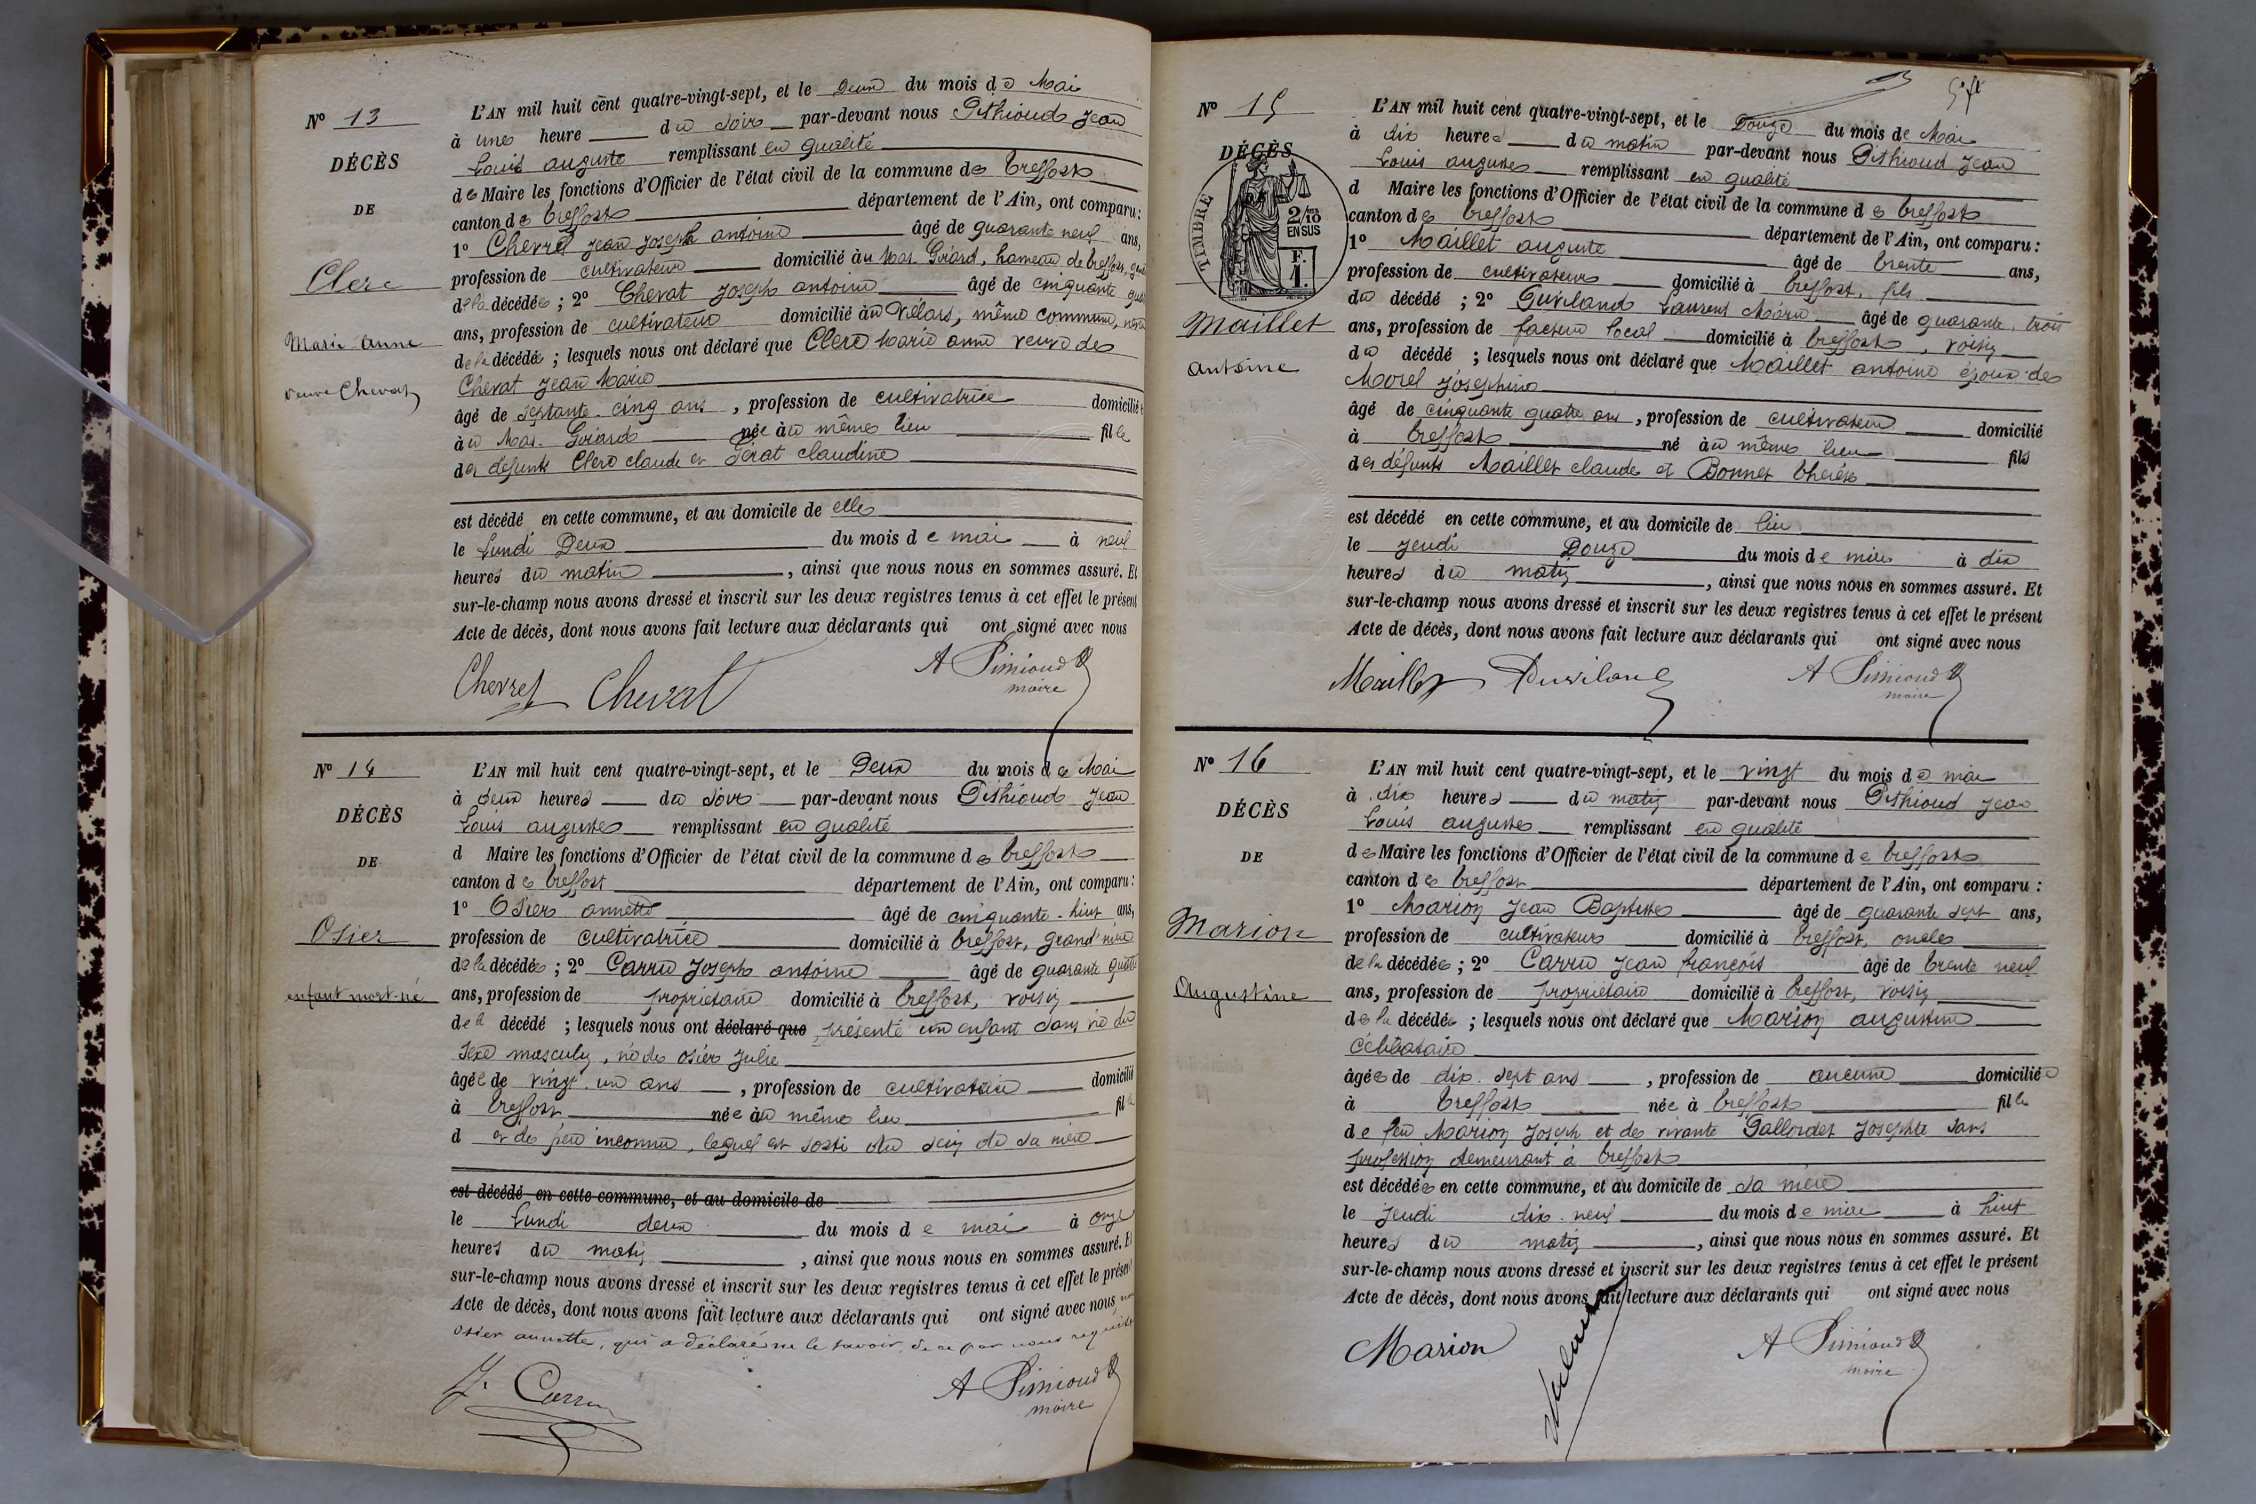 Nº 13
DÉCÈS
DE
Clerc
Marie Anne
veuve Chevat
L'AN mil huit cent quatre-vingt-sept, et le Deux du mois de Mai
à une heure du soir par-devant nous Pithioud Jean
Louis auguste remplissant en qualité
de Maire les fonctions d'Officier de l'état civil de la commune de Treffort
canton de Treffort département de l'Ain, ont comparu :
1º Chevrel jean joseph antoine âgé de quarante neuf ans,
profession de cultivateur domicilié au Mas Goirard, hameau de Treffort,
de la décédée ; 2º Chevat joseph antoine âgé de cinquante
ans, profession de cultivateur domicilié au Villars, même commune, neveu
de la décédée ; lesquels nous ont déclaré que Clerc Marie anne veuve de
Chevat Jean Marie
âgé de septante cinq ans , profession de cultivatrice domicilié
au Mas Goirard née au même lieu fille
des défunts Clerc claude et Pérat claudine
est décédé en cette commune, et au domicile de elle
le Lundi Deux du mois de mai à neuf
heures du matin , ainsi que nous nous en sommes assuré. Et
sur-le-champ nous avons dressé et inscrit sur les deux registres tenus à cet effet le présent
Acte de décès, dont nous avons fait lecture aux déclarants qui ont signé avec nous
Chevrel Chevat A Pithioud
maire
Nº 14
DÉCÈS
DE
Osier
enfant mort-né
L'AN mil huit cent quatre-vingt-sept, et le Deux du mois de Mai
à deux heures du soir par-devant nous Pithioud Jean
Louis auguste remplissant en qualité
d Maire les fonctions d'Officier de l'état civil de la commune de Treffort
canton de Treffort département de l'Ain, ont comparu :
1º Osier annette âgé de cinquante-huit ans,
profession de cultivatrice domicilié à Treffort, grand'mère
de la décédée ; 2º Carru Joseph antoine âgé de quarante quatre
ans, profession de propriétaire domicilié à Treffort, voisin
de décédé ; lesquels nous ont déclaré que présenté un enfant sans vie du
sexe masculin, né de Osier Julie
âgée de vingt un ans , profession de cultivatrice domicilié
à Treffort née au même lieu fille
d et de père inconnu, lequel est sorti du sein de sa mère
est décédé en cette commune, et au domicile de
le Lundi deux du mois de mai à onze
heures du matin , ainsi que nous nous en sommes assuré. Et
sur-le-champ nous avons dressé et inscrit sur les deux registres tenus à cet effet le présent
Acte de décès, dont nous avons fait lecture aux déclarants qui ont signé avec nous, non
Osier annette, qui a déclaré ne le savoir, de ce par nous requise
J. Carru A Pithioud
maire
Nº 15
DÉCÈS
TIMBRE
2/10
EN SUS
F.
1.
Maillet
Antoine
L'AN mil huit cent quatre-vingt-sept, et le Douze du mois de Mai
à dix heures du matin par-devant nous Pithioud Jean
Louis auguste remplissant en qualité
d Maire les fonctions d'Officier de l'état civil de la commune de Treffort
canton de Treffort département de l'Ain, ont comparu :
1º Maillet auguste âgé de trente ans,
profession de cultivateur domicilié à Treffort, fils
du décédé ; 2º Guviland Laurent Marie âgé de quarante trois
ans, profession de facteur local domicilié à Treffort, voisin
du décédé ; lesquels nous ont déclaré que Maillet antoine époux de
Morel joséphine
âgé de cinquante quatre ans , profession de cultivateur domicilié
à Treffort né au même lieu fils
des défunts Maillet claude et Bonnet thérèse
est décédé en cette commune, et au domicile de lui
le jeudi Douze du mois de mai à dix
heures du matin , ainsi que nous nous en sommes assuré. Et
sur-le-champ nous avons dressé et inscrit sur les deux registres tenus à cet effet le présent
Acte de décès, dont nous avons fait lecture aux déclarants qui ont signé avec nous
Maillet A Pithioud
maire
Nº 16
DÉCÈS
DE
Marion
Augustine
L'AN mil huit cent quatre-vingt-sept, et le vingt du mois de mai
à dix heures du matin par-devant nous Pithioud Jean
Louis auguste remplissant en qualité
de Maire les fonctions d'Officier de l'état civil de la commune de Treffort
canton de Treffort département de l'Ain, ont comparu :
1º Marion Jean Baptiste âgé de quarante sept ans,
profession de cultivateur domicilié à Treffort, oncle
de la décédée ; 2º Carru Jean françois âgé de trente neuf
ans, profession de propriétaire domicilié à Treffort, voisin
de la décédée ; lesquels nous ont déclaré que Marion augustine
Célibataire
âgée de dix sept ans , profession de aucune domiciliée
à Treffort née à Treffort fille
de feu Marion Joseph et de vivante Josephte sans
profession demeurant à Treffort
est décédée en cette commune, et au domicile de sa mère
le Jeudi dix neuf du mois de mai à huit
heures du matin , ainsi que nous nous en sommes assuré. Et
sur-le-champ nous avons dressé et inscrit sur les deux registres tenus à cet effet le présent
Acte de décès, dont nous avons fait lecture aux déclarants qui ont signé avec nous
Marion A Pithioud
maire